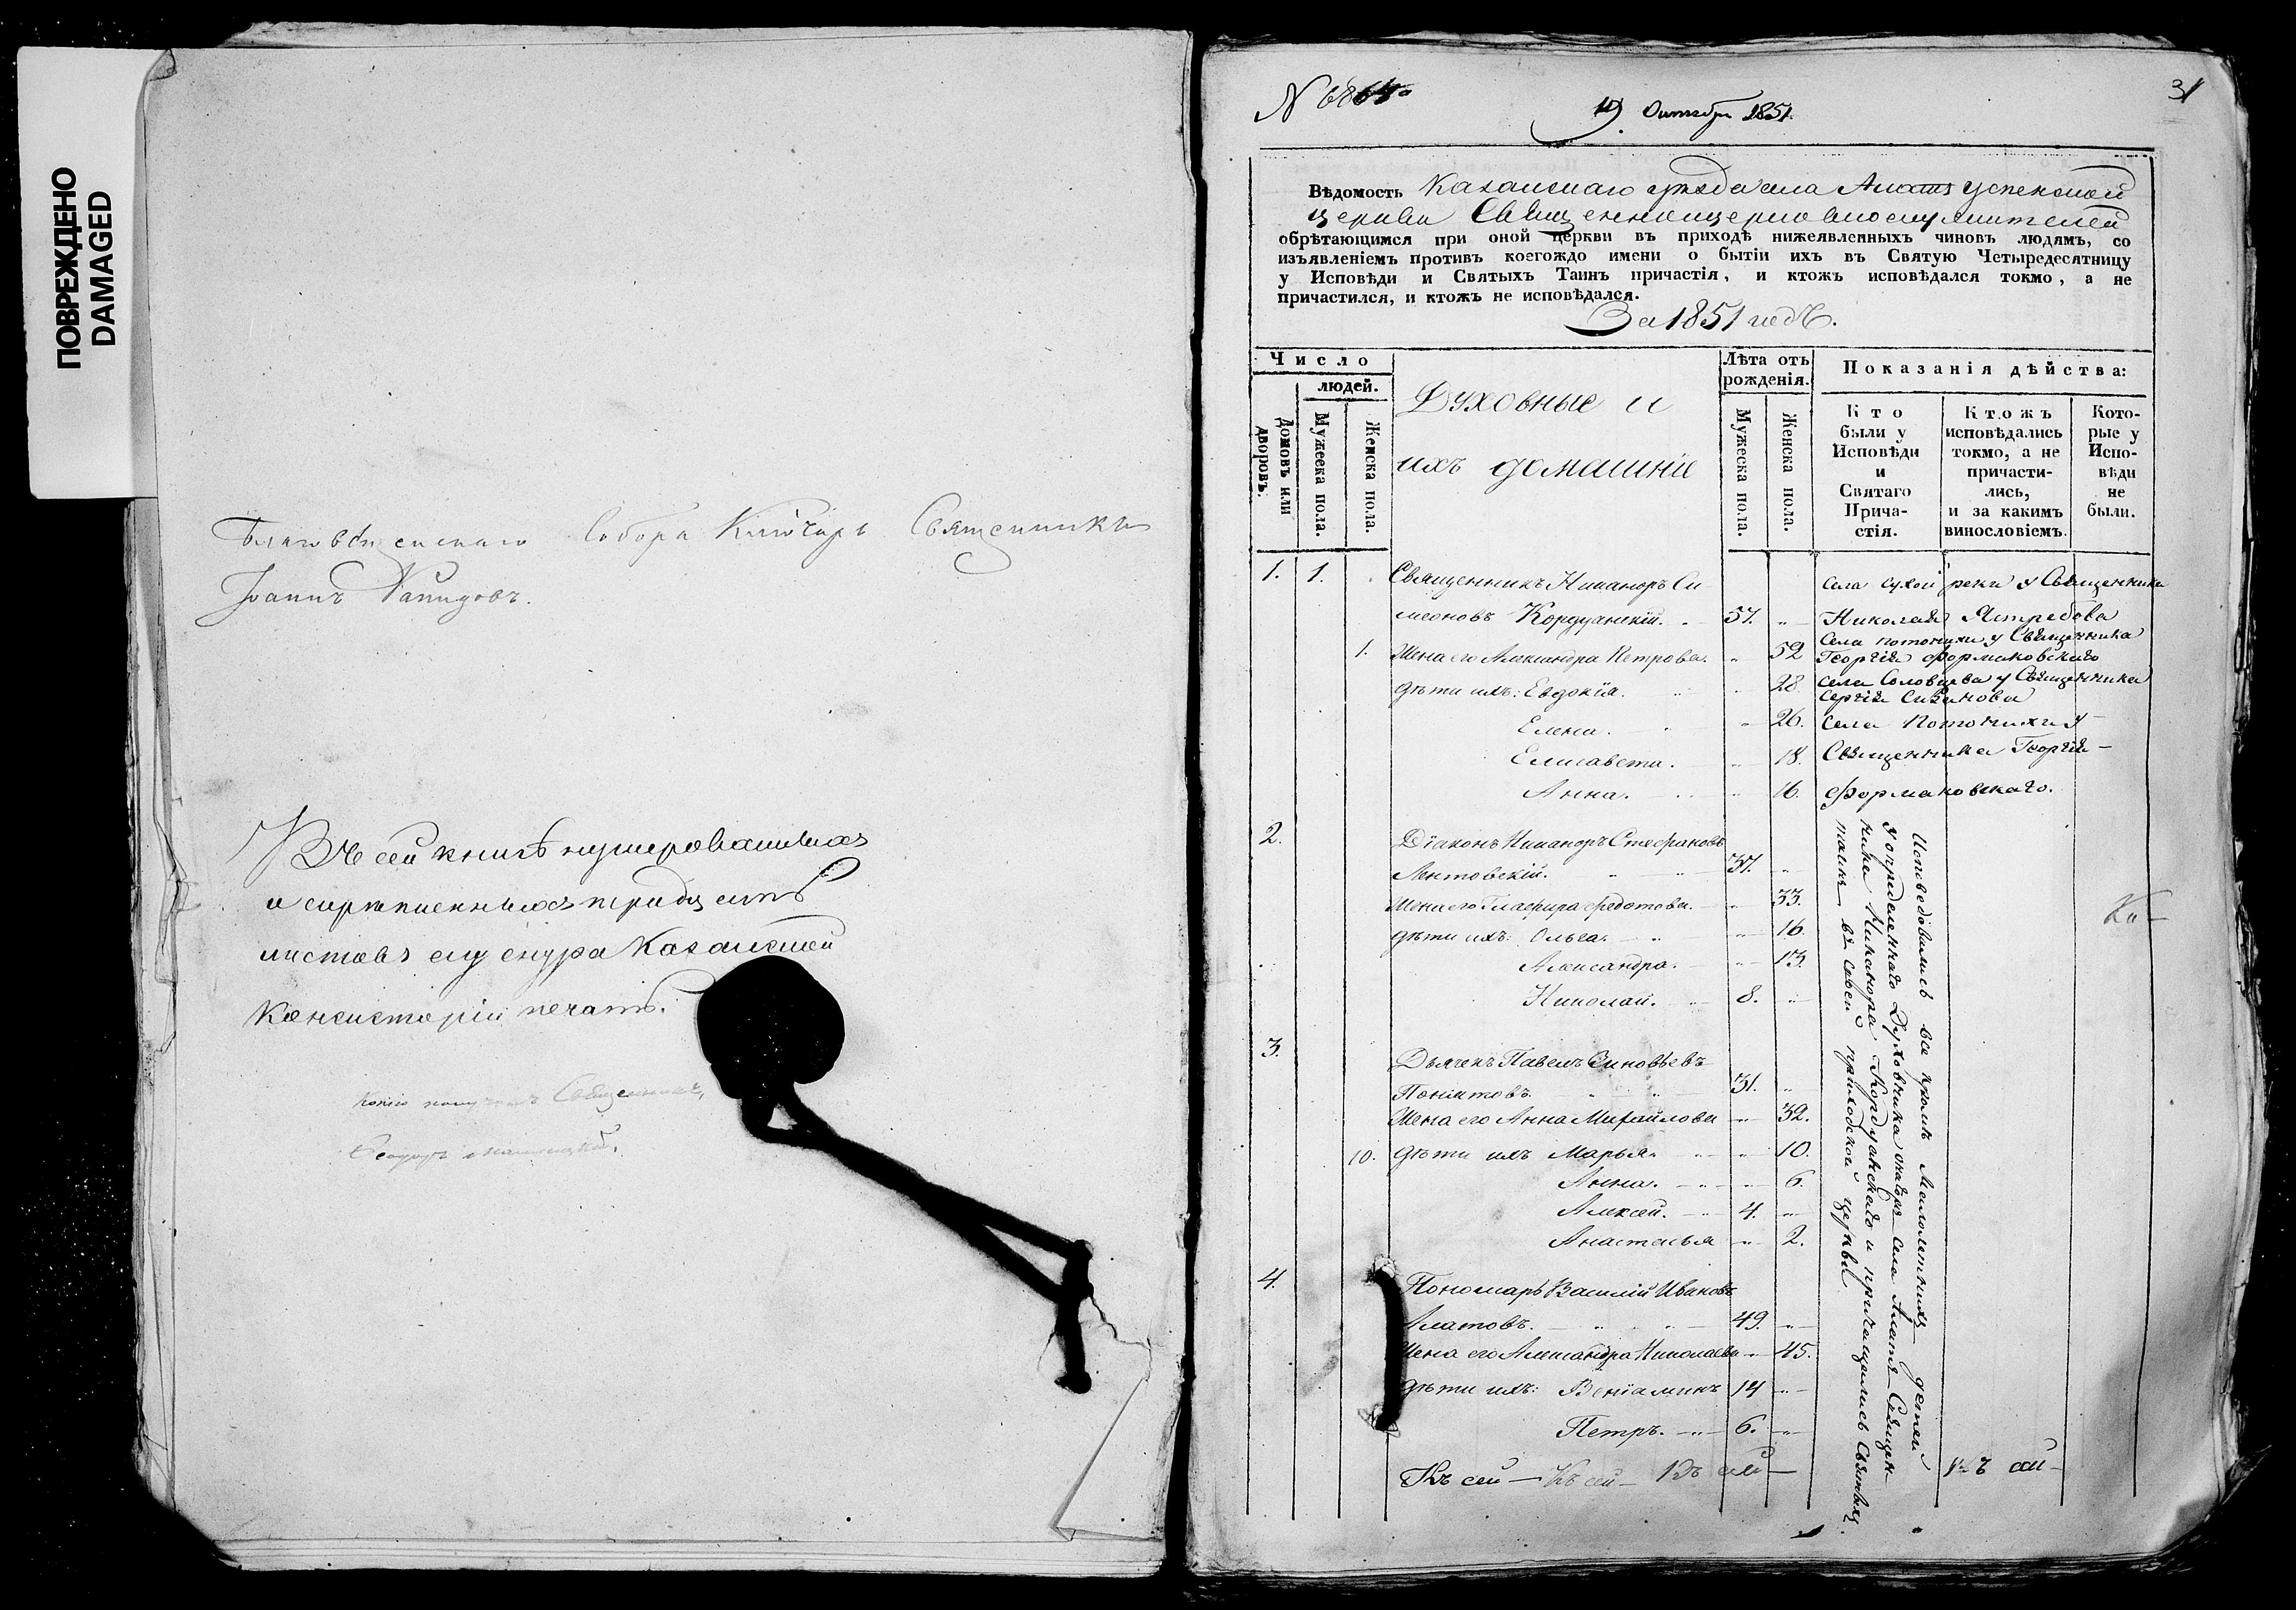 ПОВРЕЖДЕНО
DAMAGED
Благовѣщенскаго Собора Ключарь Священникъ
Іоаннъ
Въ сей книгѣ нумерованныхъ
и скрѣпленныхъ тридцать
листовъ ея у снура Казанской
Консисторіи печать.
копію получилъ Священникъ,
N 6864
19 Октября 1851.
31
Вѣдомость Казанскаго уѣзда села Алатъ Успенской
церкви Священноцерковнослужителей
обрѣтающимся при оной церкви въ приходѣ нижеявленныхъ чиновъ людямъ, со
изъявленіемъ противъ коегождо имени о бытіи ихъ въ Святую Четыредесятницу
у Исповѣди и Святыхъ Таинъ причастія, и ктожъ исповѣдался токмо, а не
причастился, и ктожъ не исповѣдался.
За 1851 годъ.
Число
людей.
Домовъ или дворовъ.
Мужеска пола.
Женска пола.
Духовные и
ихъ домашніе
Лѣта отъ
рожденія.
Мужеска пола.
Женска пола.
Показанія дѣйства:
Кто
были у
Исповѣди
и
Святаго
Прича-
стія.
Ктожъ
исповѣдались
токмо, а не
причасти-
лись,
и за какимъ
винословіемъ.
Кото-
рые у
Испо-
вѣди
не
были.
1. 1. Священникъ Никаноръ Си- села Сухой реки у Священника
меоновъ Кордуанскій. 57. Николая Ястребова
1. Жена его Александра Петрова. 52 Села Потонихи у Священника Георгія Формаковскаго
дѣти ихъ: Евдокія. 28. села Соловцева у Священника Сергія
Елена. 26. села Потонихи у
Елисавета. 18. Священника Георгія
Анна. 16. Формаковскаго.
2. Діаконъ Никаноръ Стефановъ
Лентовскій. 37.
Жена его Глафира Федотова. 33.
дѣти ихъ: Ольга. 16.
Александра. 13.
Николай. 8.
3. Дьячекъ Павелъ Зиновьевъ
31.
Жена его Анна Михайлова 32.
10. дѣти ихъ Марья. 10.
Анна. 6.
Алексей. 4.
Анастасья 2.
4. Пономарь Василій Ивановъ
Алатовъ. 49.
Жена его Александра Николаева 45.
дѣти ихъ: Веніаминъ 14
Петръ. 6.
Исповедовались все кромѣ Малолетнихъ детей
у определеннаго Духовника онагож села Алатъ Священ-
ника Никанора Кордуанскаго и причащались Святыхъ
таинъ въ своей приходской церкви.
Къ сей — Къ сей — Къ сей — Къ сей —